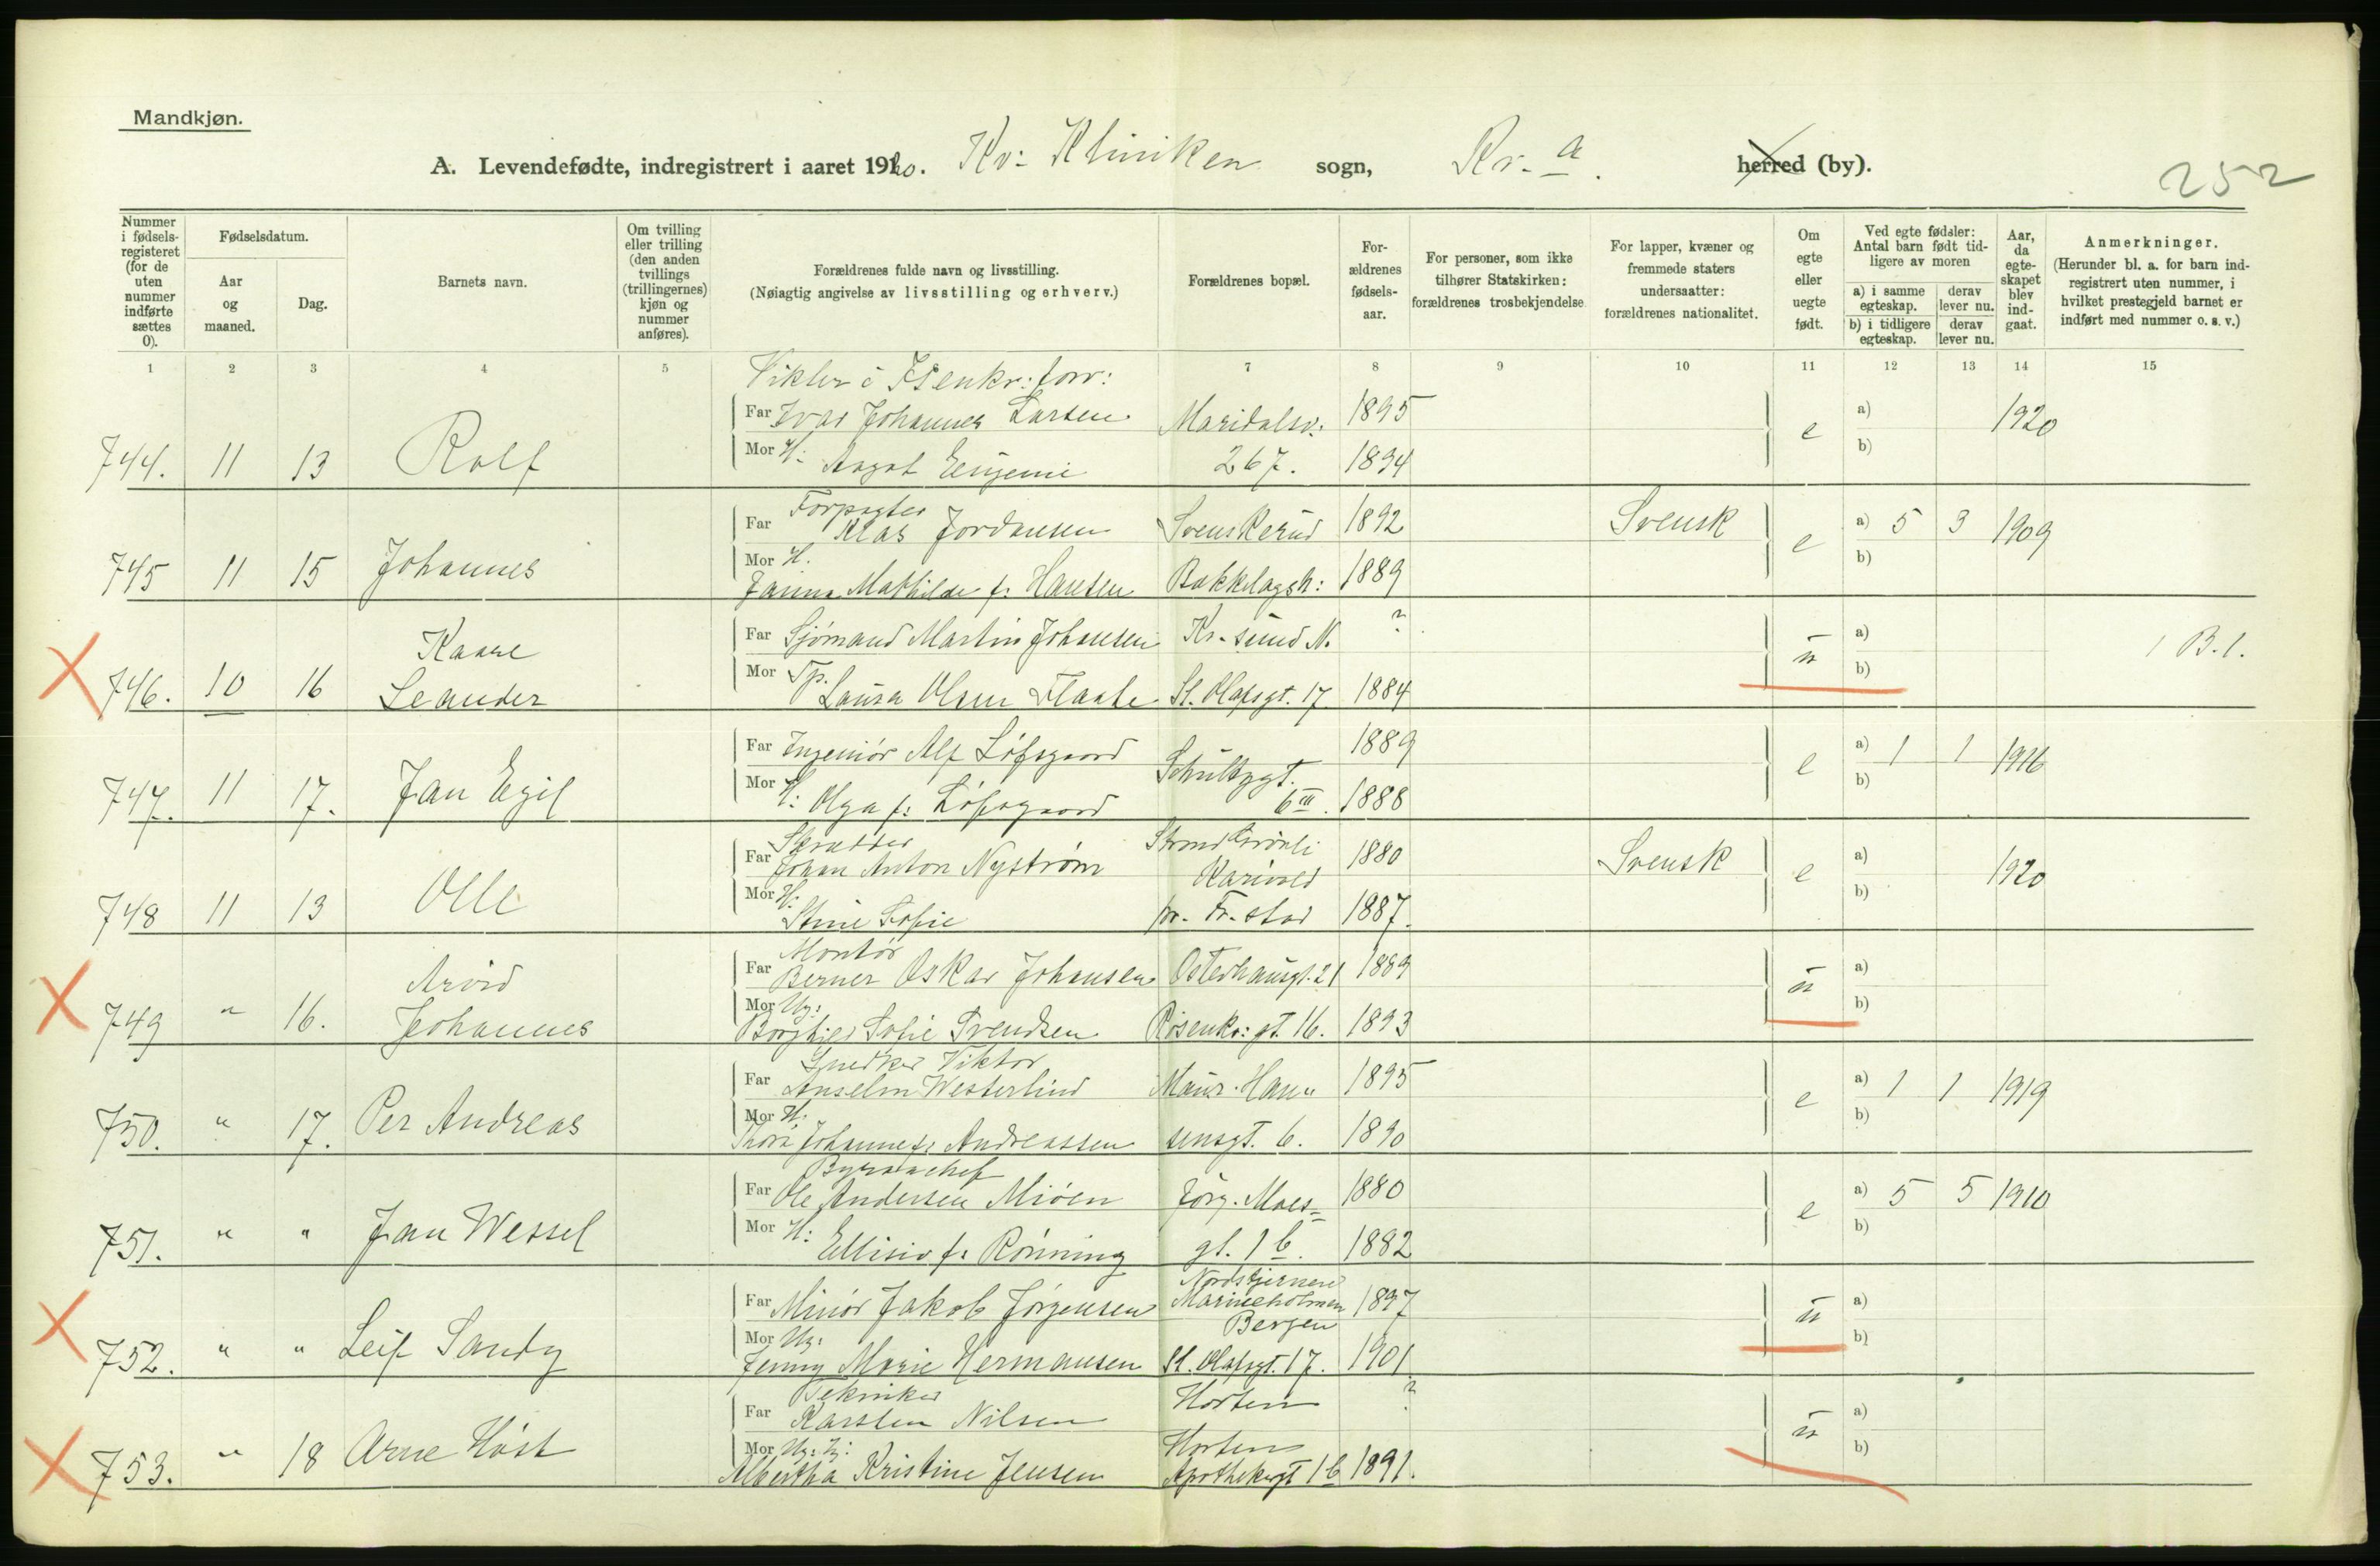 Mandkjøn.
A. Levendefødte, indregistrert i aaret 1920. Kv: Kliniken sogn, Kr.a. herred (by).
252
Nummer i fødsels-registeret (for de uten nummer indførte sættes 0).
Fødselsdatum.
Aar og maaned.
Dag.
Barnets navn.
Om tvilling eller trilling (den anden tvillings (trillingernes) kjøn og nummer anføres).
Forældrenes fulde navn og livsstilling.
(Nøiagtig angivelse av livsstilling og erhverv.)
Forældrenes bopæl.
For-ældrenes fødsels-aar.
For personer, som ikke tilhører Statskirken: forældrenes trosbekjendelse.
For lapper, kvæner og fremmede staters undersaatter: forældrenes nationalitet.
Om egte eller uegte født.
Ved egte fødsler: Antal barn født tid-ligere av moren
a) i samme egteskap. derav lever nu.
b) i tidligere egteskap. derav lever nu.
Aar, da egte-skapet blev ind-gaat.
Anmerkninger.
(Herunder bl. a. for barn ind-registrert uten nummer, i hvilket prestegjeld barnet er indført med nummer o. s. v.)
1 2 3 4 5 7 8 9 10 11 12 13 14 15
Far Ivar Johannes Larsen Maridalsv: 1895 a) 1920
744. 11 13 Rolf Mor H: Aagot Eugenie 267. 1894 e b)
Forpagter
Far Klas Jordansen Svenskerud 1892 Svensk a) 5 3 1909
745 11 15 Johannes Mor H. e b)
Janna Mathilde f: Hansen Bækkelagsh: 1889
Kaare Far Sjømand Martin Johansen Kr.sund N. ? a) 1 B.1.
746. 10 16 Leander Mor Tp. Laura Olsen Flaate St. Olafsgt. 17 1884 u b)
Far Ingeniör Alf Löfsgaard Schultzgt. 1889 a) 1 1 1916
747. 11 17. Jan Egil Mor H: Olga f: Löfsgaard 6 III. 1888 e b)
Far Johan Anton Nyström 1880 Svensk a) 1920
748 11 13 Olle Mor H: Stine Sofie pr. Fr.stad 1887. e b)
Montör
Arvid Far Berner Oskar Johansen Osterhausgt. 21 1889 a)
749 " 16. Johannes Mor Ug: Borghild Sofie Svendsen Rosenkr: gt. 16. 1893 u b)
Snedker Viktor
Far Anselm Westerlind Maur. Han" 1895 a) 1 1 1919
750. " 17. Per Andreas Mor H: Thora Johanne f: Andreassen sensgt. 6. 1890 e b)
Byraachef
Far Ole Andersen Miöen Jörg. Moes= 1880 a) 5 5 1910
751. " " Jan Wessel Mor H: Ellisiv f: Rönning gt. 1 b. 1882 e b)
Nordstjernen
Far Minör Jakob Jörgensen Marineholmen 1897 a)
Bergen
752. " " Leif Sandy Mor Ug: Jenny Marie Hermansen St. Olafsgt. 17. 1901 u b)
Tekniker
Far Karsten Nilsen Horten ? a)
Mor Ug: Horten
753. " 18 Arne Höst Albertha Kristine Jensen Apothekergt 1 b 1891. u b)